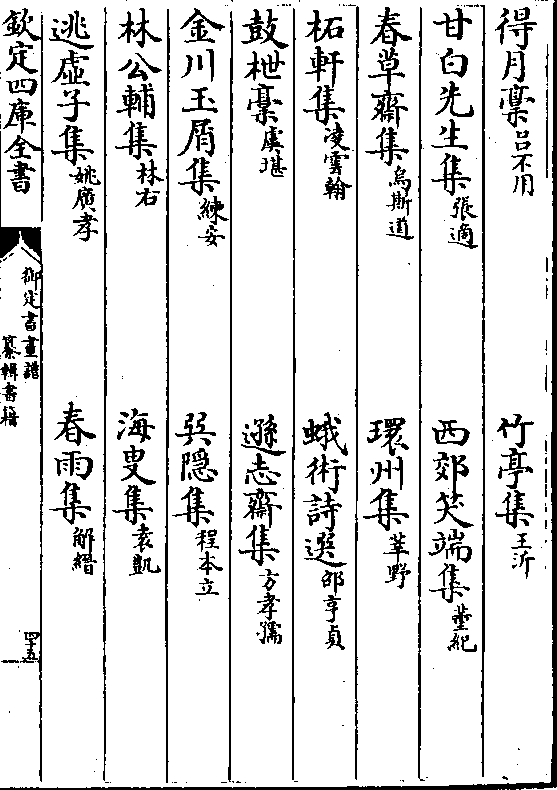 得月稾吕不用　竹亭集王沂
甘白先生集張適　西郊笑端集董紀
春草齋集烏斯道　環州集莘野
柘軒集凌雲翰　蛾術詩選邵亨貞
鼓枻稾虞堪　遜志齋集方孝孺
金川玉屑集練安　巽隱集程本立
林公輔集林右　海叟集袁凱
逃虛子集姚廣孝　春雨集解縉
欽定四庫全書
御定書畫譜
纂輯書籍
四十五